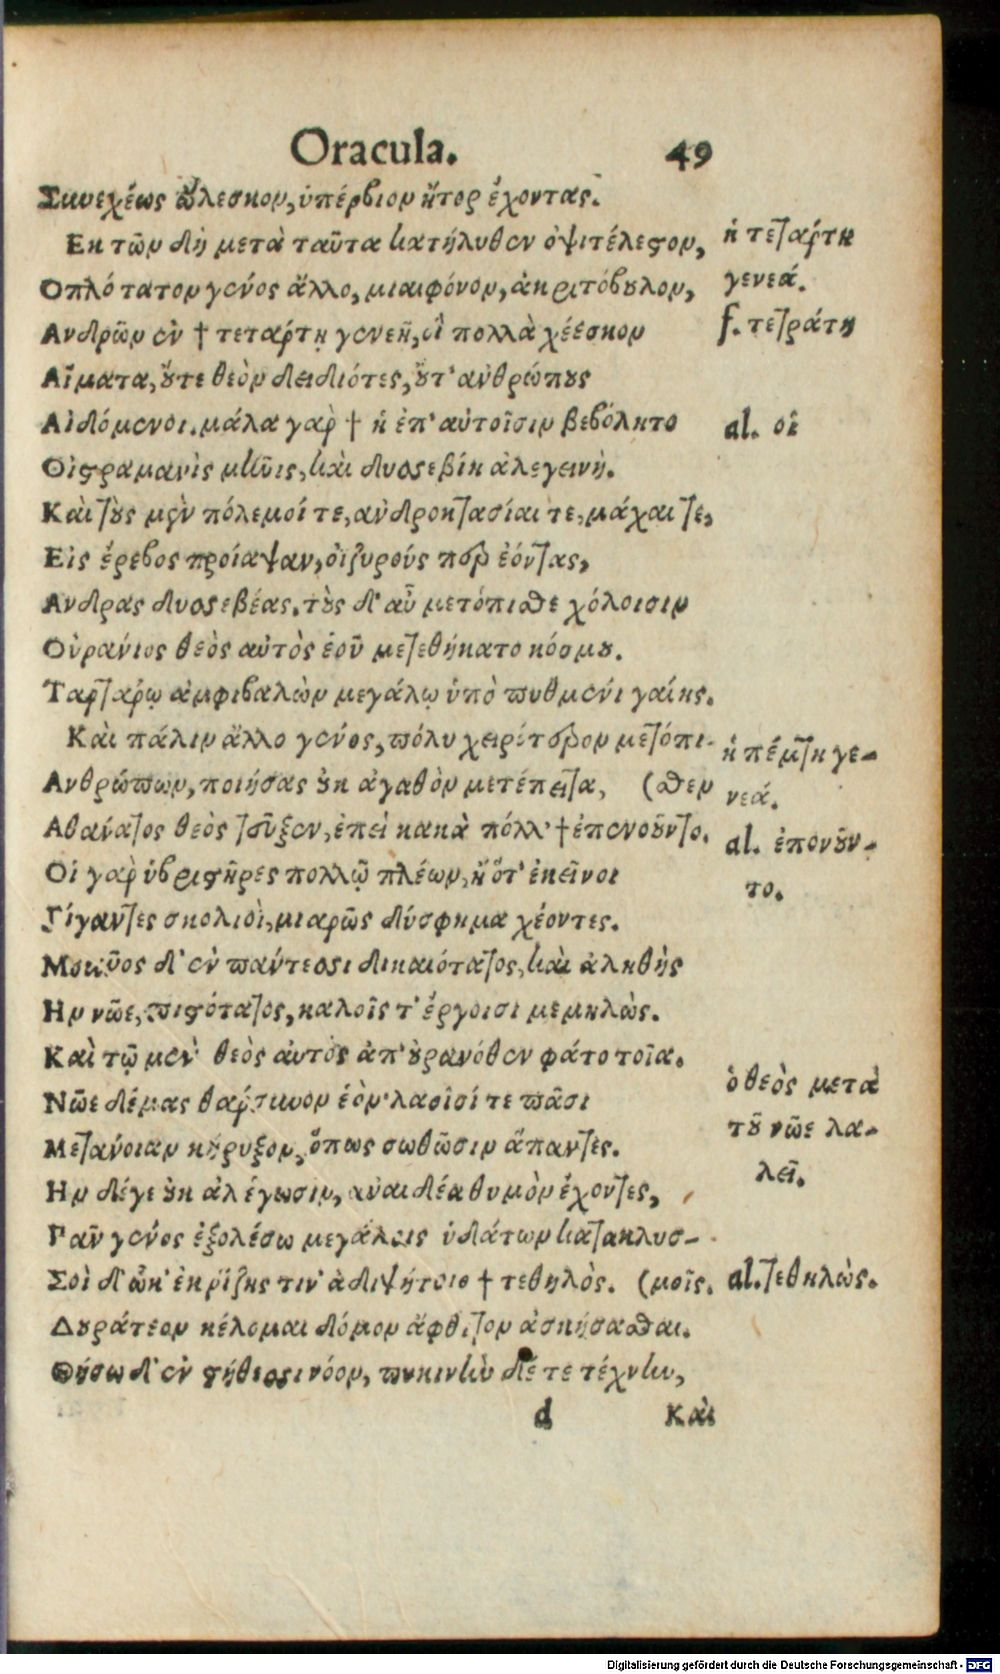 Oracula. 49
Συνεχέως ὤλεσκον, ὑπέρβιον ἦτορ ἔχοντας.
Εκ τῶν δὴ μετὰ ταῦτα κατήλυθεν ὀψιτέλεστον,
Οπλότατον γένος ἄλλο, μιαιφόνον, ἀκριτόβουλον,
Ανδρῶν ἐν † τετάρτῃ γενεῇ, οἳ πολλὰ χέεσκον
Αἵματα, οὔτε θεὸν δειδιότες, οὔτ' ἀνθρώπους
Αἰδόμενοι. μάλα γὰρ † ἡ ἐπ' αὐτοῖσιν βεβόλητο
Οἰστρομανὶς μῆνις, καὶ δυσσεβίη ἀλεγεινή.
Καὶ τοὺς μὲν πόλεμοί τε, ἀνδροκτασίαι τε, μάχαι τε,
Εἰς ἔρεβος προίαψαν, ὀϊζυρούς περ ἐόντας,
Ανδρας δυσσεβέας. τοὺς δ' αὖ μετόπισθε χόλοισιν
Οὐράνιος θεὸς αὐτὸς ἑοῦ μετεθήκατο κόσμου.
Ταρτάρῳ ἀμφιβαλὼν μεγάλῳ ὑπὸ πυθμένι γαίης.
Καὶ πάλιν ἄλλο γένος, πόλυ χειρότερον μετόπι-
Ανθρώπων, ποιήσας οὐκ ἀγαθὸν μετέπειτα, (σθεν
Αθανάτος θεὸς τεῦξεν, ἐπεὶ κακὰ πόλλ' † ἐπενοῦντο.
Οἱ γὰρ ὑβριστῆρες πολλῷ πλέων, ἢ ὅτ' ἐκεῖνοι
Γίγαντες σκολιοὶ, μιαρῶς δύσφημα χέοντες.
Μοῦνος δ' ἐν πάντεσσι δικαιότατος, καὶ ἀληθὴς
Ην νῶε, πιστότατος, καλοῖς τ' ἔργοισι μεμηλώς.
Καὶ τῷ μὲν θεὸς αὐτὸς ἀπ' οὐρανόθεν φάτο τοῖα.
Νῶε δέμας θαρσυνον ἑὸν· λαοῖσί τε πᾶσι
Μετάνοιαν κήρυξον, ὅπως σωθῶσιν ἅπαντες.
Ην δέγε οὐκ ἀλέγωσιν, ἀναιδέα θυμὸν ἔχοντες,
Πᾶν γένος ἐξολέσω μεγάλοις ὑδάτων κατακλυσ-
Σοὶ δ' ὦκ' ἐκ ῥίζης τιν' ἀδιψήτοιο † τεθηλὸς. (μοῖς.
Δουράτεον κέλομαι δόμον ἄφθιτον ἀσκήσασθαι.
Θήσω δ' ἐν στήθεσσι νόον, πυκινὴν δέ τε τέχνην,
d Καὶ
ἡ τετάρτη
γενεά.
f. τετράτη
al. οἳ
ἡ πέμπτη γε-
νεά.
al. ἐπονοῦν-
το.
ὁ θεὸς μετὰ
τοῦ νῶε λα-
λεῖ.
al. τεθηλὼς.
Digitalisierung gefördert durch die Deutsche Forschungsgemeinschaft - DFG